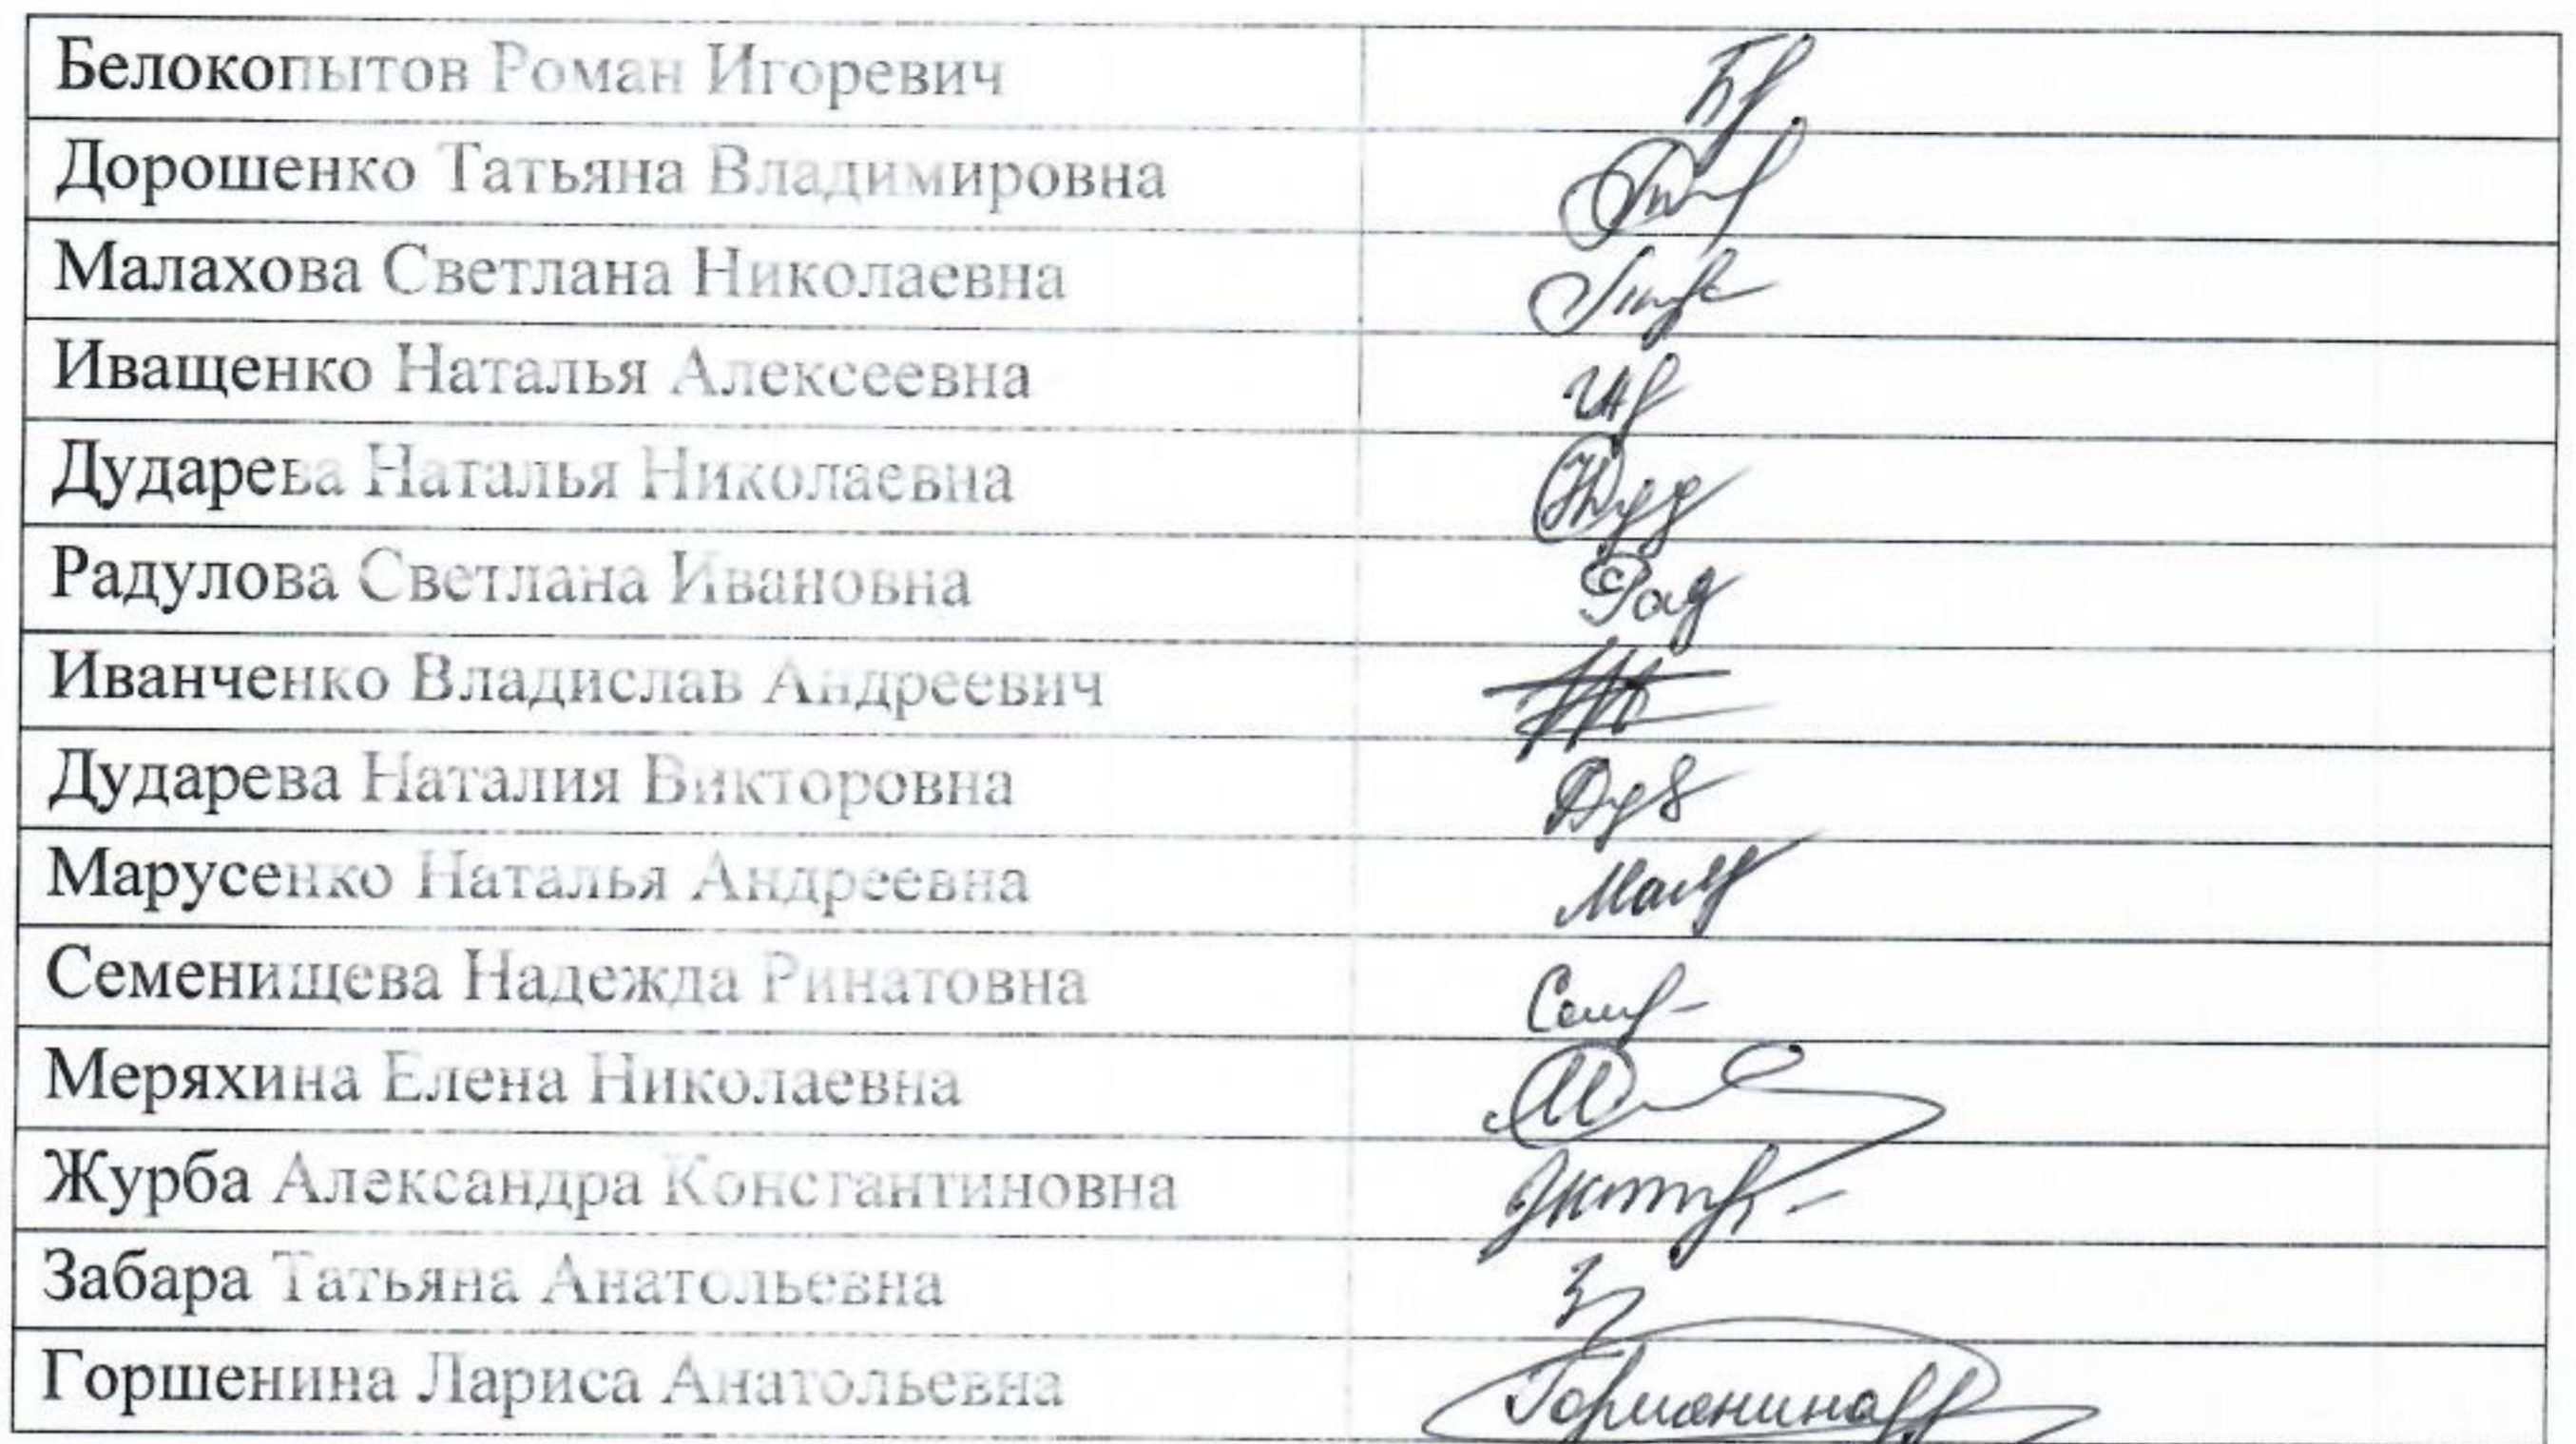 Белокопытов Роман Игоревич
Дорошенко Татьяна Владимировна
Малахова Светлана Николаевна
Иващенко Наталья Алексеевна
Дударева Наталья Николаевна
Радулова Светлана Ивановна
Иванченко Владислав Андреевич
Дударева Наталия Викторовна
Марусенко Наталья Андреевна
Семенищева Надежда Ринатовна
Меряхина Елена Николаевна
Журба Александра Константиновна
Забара Татьяна Анатольевна
Горшенина Лариса Анатольевна